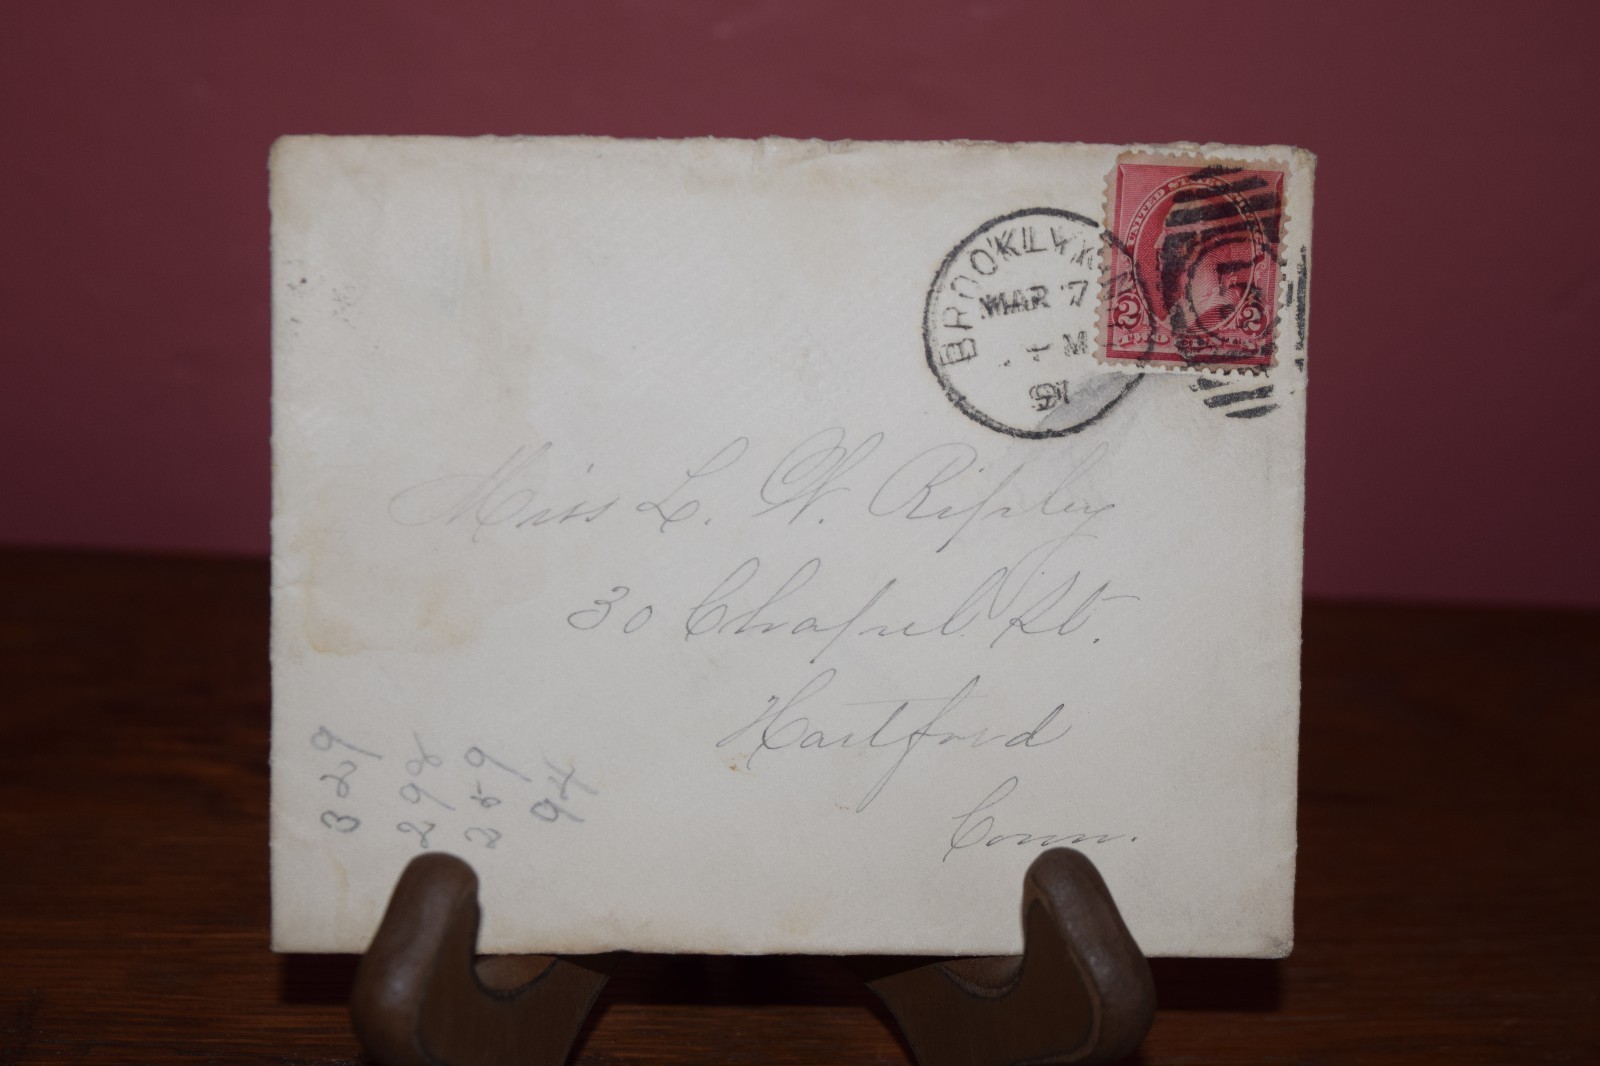 BROOKLYN
MAR 7
M
91
UNITED STATES
2 2
TWO CENTS
Miss L. W. Ripley
30 Chapel St.
Hartford
Conn.
329
298
259
94